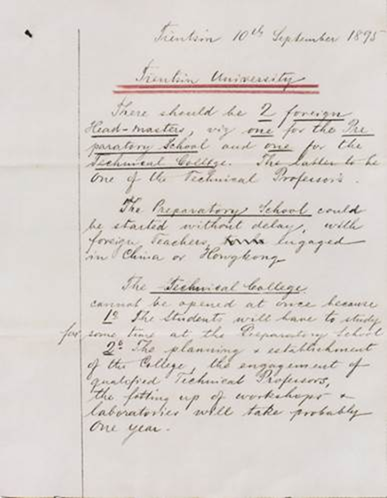 Tientsin 10th September 1895
Tientsin University
There should be 2 foreign
Head-masters, viz one for the Pre
paratory School and one for the
Technical College. The latter to be
one of the Technical Professors.
The Preparatory School could
be started without delay, with
foreign Teachers, engaged
in China or Hongkong
The Technical College
cannot be opened at once because
1o The Students will have to study
for some time at the Preparatory School
2o The planning & establishment
of the College, the engagement of
qualified Technical Professors,
the fitting up of workshops &
laboratories will take probably
one year.